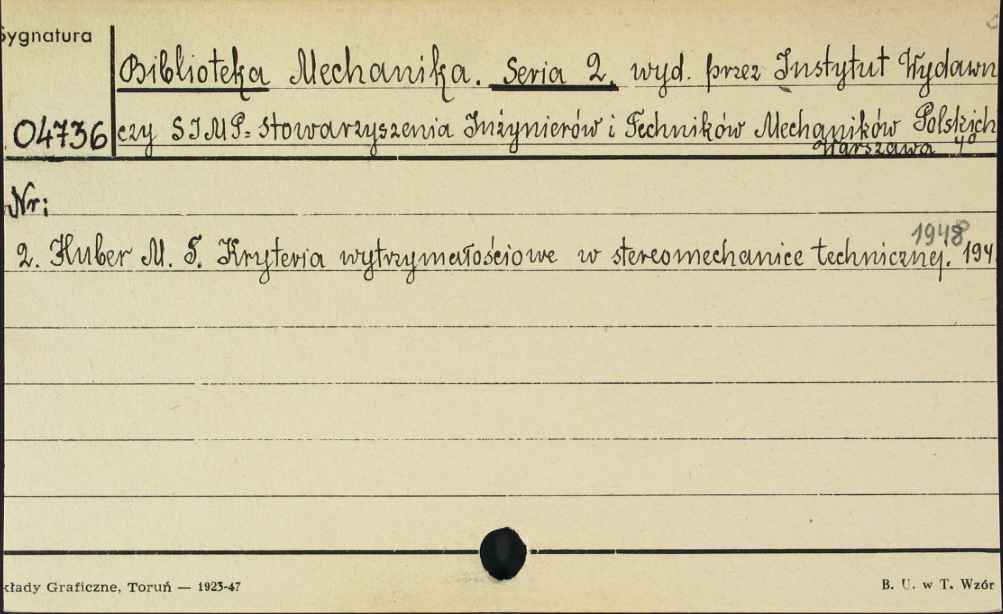 Sygnatura
Biblioteka Mechanika. Seria 2. wyd. przez Instytut Wydawn
04736 czy SIMP= Stowarzyszenia Inżynierów i Techników Mechaników Polskich
Warszawa 4°
Nr:
1948
2. Huber M. T. Kryteria wytrzymałościowe w stereomechanice technicznej. 194
kłady Graficzne, Toruń — 1923-47
B. U. w T. Wzór